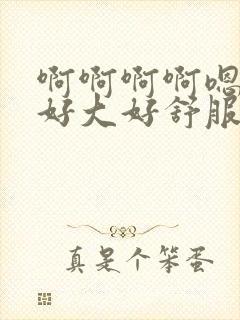 啊啊啊啊嗯
好大好舒服
真是个笨蛋